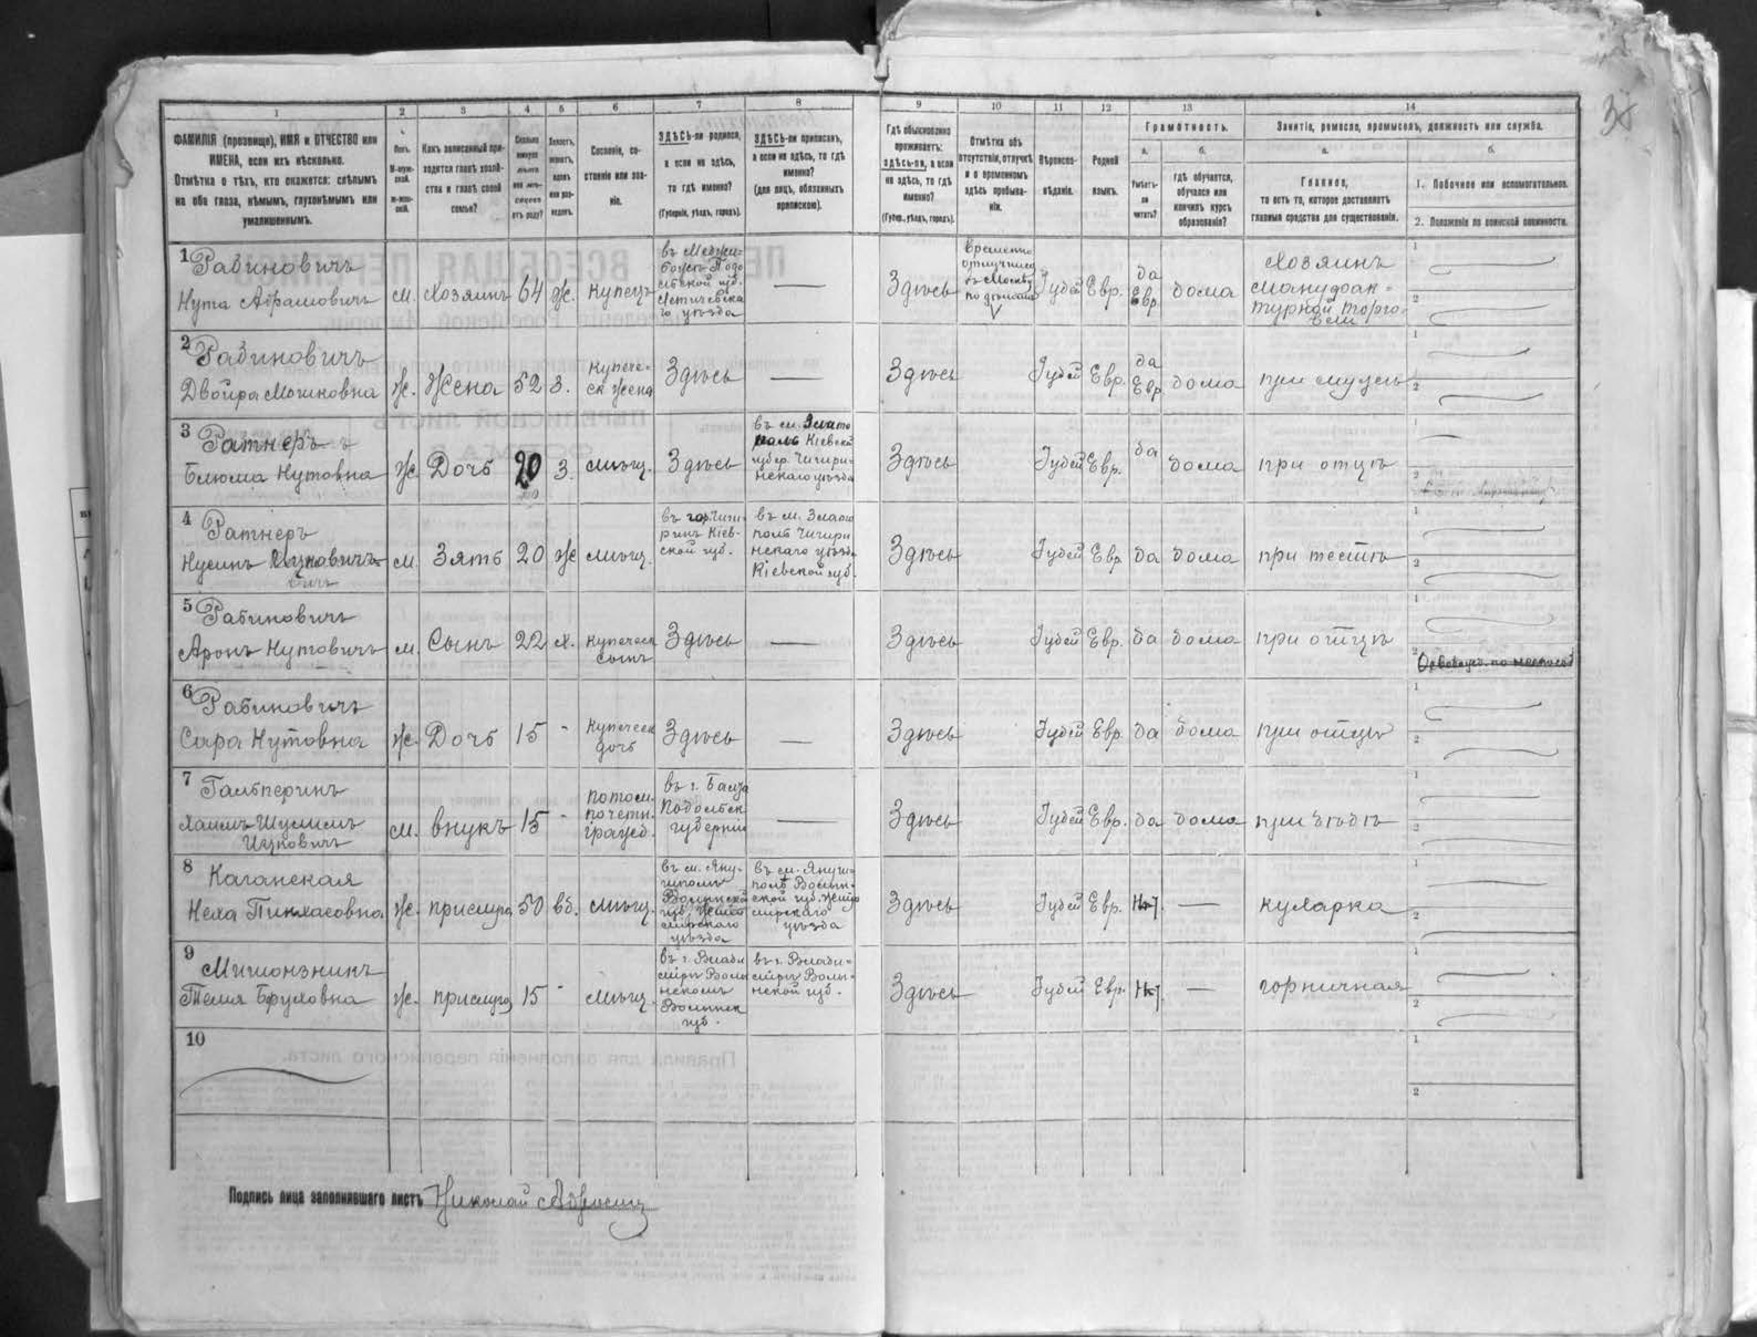 1 2 3 4 5 6 7 8 9 10 11 12 13 14
ФАМИЛІЯ (прозвище), ИМЯ и ОТЧЕСТВО или
ИМЕНА, если ихъ нѣсколько.
Отмѣтка о тѣхъ, кто окажется: слѣпымъ
на оба глаза, нѣмымъ, глухонѣмымъ или
умалишеннымъ.
Полъ.
М-муж-
ской.
Ж-жен-
скій.
Какъ записанный при-
ходится главѣ хозяй-
ства и главѣ своей
семьи?
Сколько
минуло
лѣтъ
или мѣ-
сяцевъ
отъ роду?
Холостъ,
женатъ,
вдовъ
или раз-
веденъ.
Сословіе, со-
стояніе или зва-
ніе.
ЗДѢСЬ-ли родился,
а если не здѣсь,
то гдѣ именно?
(Губернія, уѣздъ, городъ).
ЗДѢСЬ-ли приписанъ,
а если не здѣсь, то гдѣ
именно?
(для лицъ, обязанныхъ
припискою).
Гдѣ обыкновенно
проживаетъ:
здѣсь-ли, а если
не здѣсь, то гдѣ
именно?
(Губер., уѣздъ, городъ).
Отмѣтка объ
отсутствіи, отлучкѣ
и о временномъ
здѣсь пребыва-
ніи.
Вѣроиспо-
вѣданіе.
Родной
языкъ.
Грамотность.
а.
Умѣетъ-
ли
читать?
б.
гдѣ обучается,
обучался или
кончилъ курсъ
образованія?
Занятіе, ремесло, промыселъ, должность или служба.
а.
Главное,
то есть то, которое доставляетъ
главныя средства для существованія.
б.
1. Побочное или вспомогательное.
2. Положеніе по воинской повинности.
1 Рабиновичъ
Нута Абрамовичъ м. Хозяинъ 64 ж. Купецъ
въ Меджи-
божѣ Подо
льской губ.
Летичевска
го уѣзда
— Здѣсь
Временно
отлучился
въ Москву
по дѣламъ
Іудей Евр. да Евр. дома
Хозяинъ
мануфак-
турной торго-
вли
1
2
2 Рабиновичъ
Двойра Мошковна Ж. Жена 52 З. Купече-
ск жена Здѣсь — Здѣсь Іудей Евр. да Евр. дома при мужѣ
1
2
3 Ратнеръ
Блюма Нутовна Ж. Дочь 20 З. мѣщ. Здѣсь
въ м. Злато
поль Кіевской
губер. Чигири-
нскаго уѣзда
Здѣсь Іудей Евр. да дома при отцѣ
1
2
4 Ратнеръ
Нусинъ м. Зять 20 Ж мѣщ.
въ гор. Чиги-
ринъ Кіев-
ской губ.
въ м. Злато
полѣ Чигири
нскаго уѣзда
Кіевской губ.
Здѣсь Іудей Евр да дома при тестѣ
1
2
5 Рабиновичъ
Аронъ Нутовичъ м. Сынъ 22 х. купеческ
сынъ Здѣсь — Здѣсь Іудей Евр. да дома при отцѣ
1
2
6 Рабиновичъ
Сара Нутовна Ж. Дочь 15 - Купеческ
дочь Здѣсь — Здѣсь Іудей Евр. да дома при отцѣ
1
2
7 Гальперинъ
Хаимъ Шулимъ
Ицковичъ м. внукъ 15 -
потом.
почетн.
гражд.
въ г. Балта
Подольск
губерніи
— Здѣсь Іудей Евр. да дома при дѣдѣ
1
2
8 Каганская
Неха Пинхасовна Ж. прислуга 50 вд. мѣщ.
въ м. Яну-
шполѣ
Волынской
губ. Жито
мирскаго
уѣзда
въ м. Януш-
полѣ Волын-
ской губ. Жито
мирскаго
уѣзда
Здѣсь Іудей Евр. Нѣт. — кухарка
1
2
9 Мишонзникъ
Темя Бруховна Ж. прислуга 15 - мѣщ.
въ г. Влади
мірѣ Волы
нскомъ
Волынск
губ.
въ г. Влади-
мірѣ Волы-
нской губ.
Здѣсь Іудей Евр. Нѣт — горничная
1
2
10
1
2
Подпись лица заполнявшаго листъ Николай